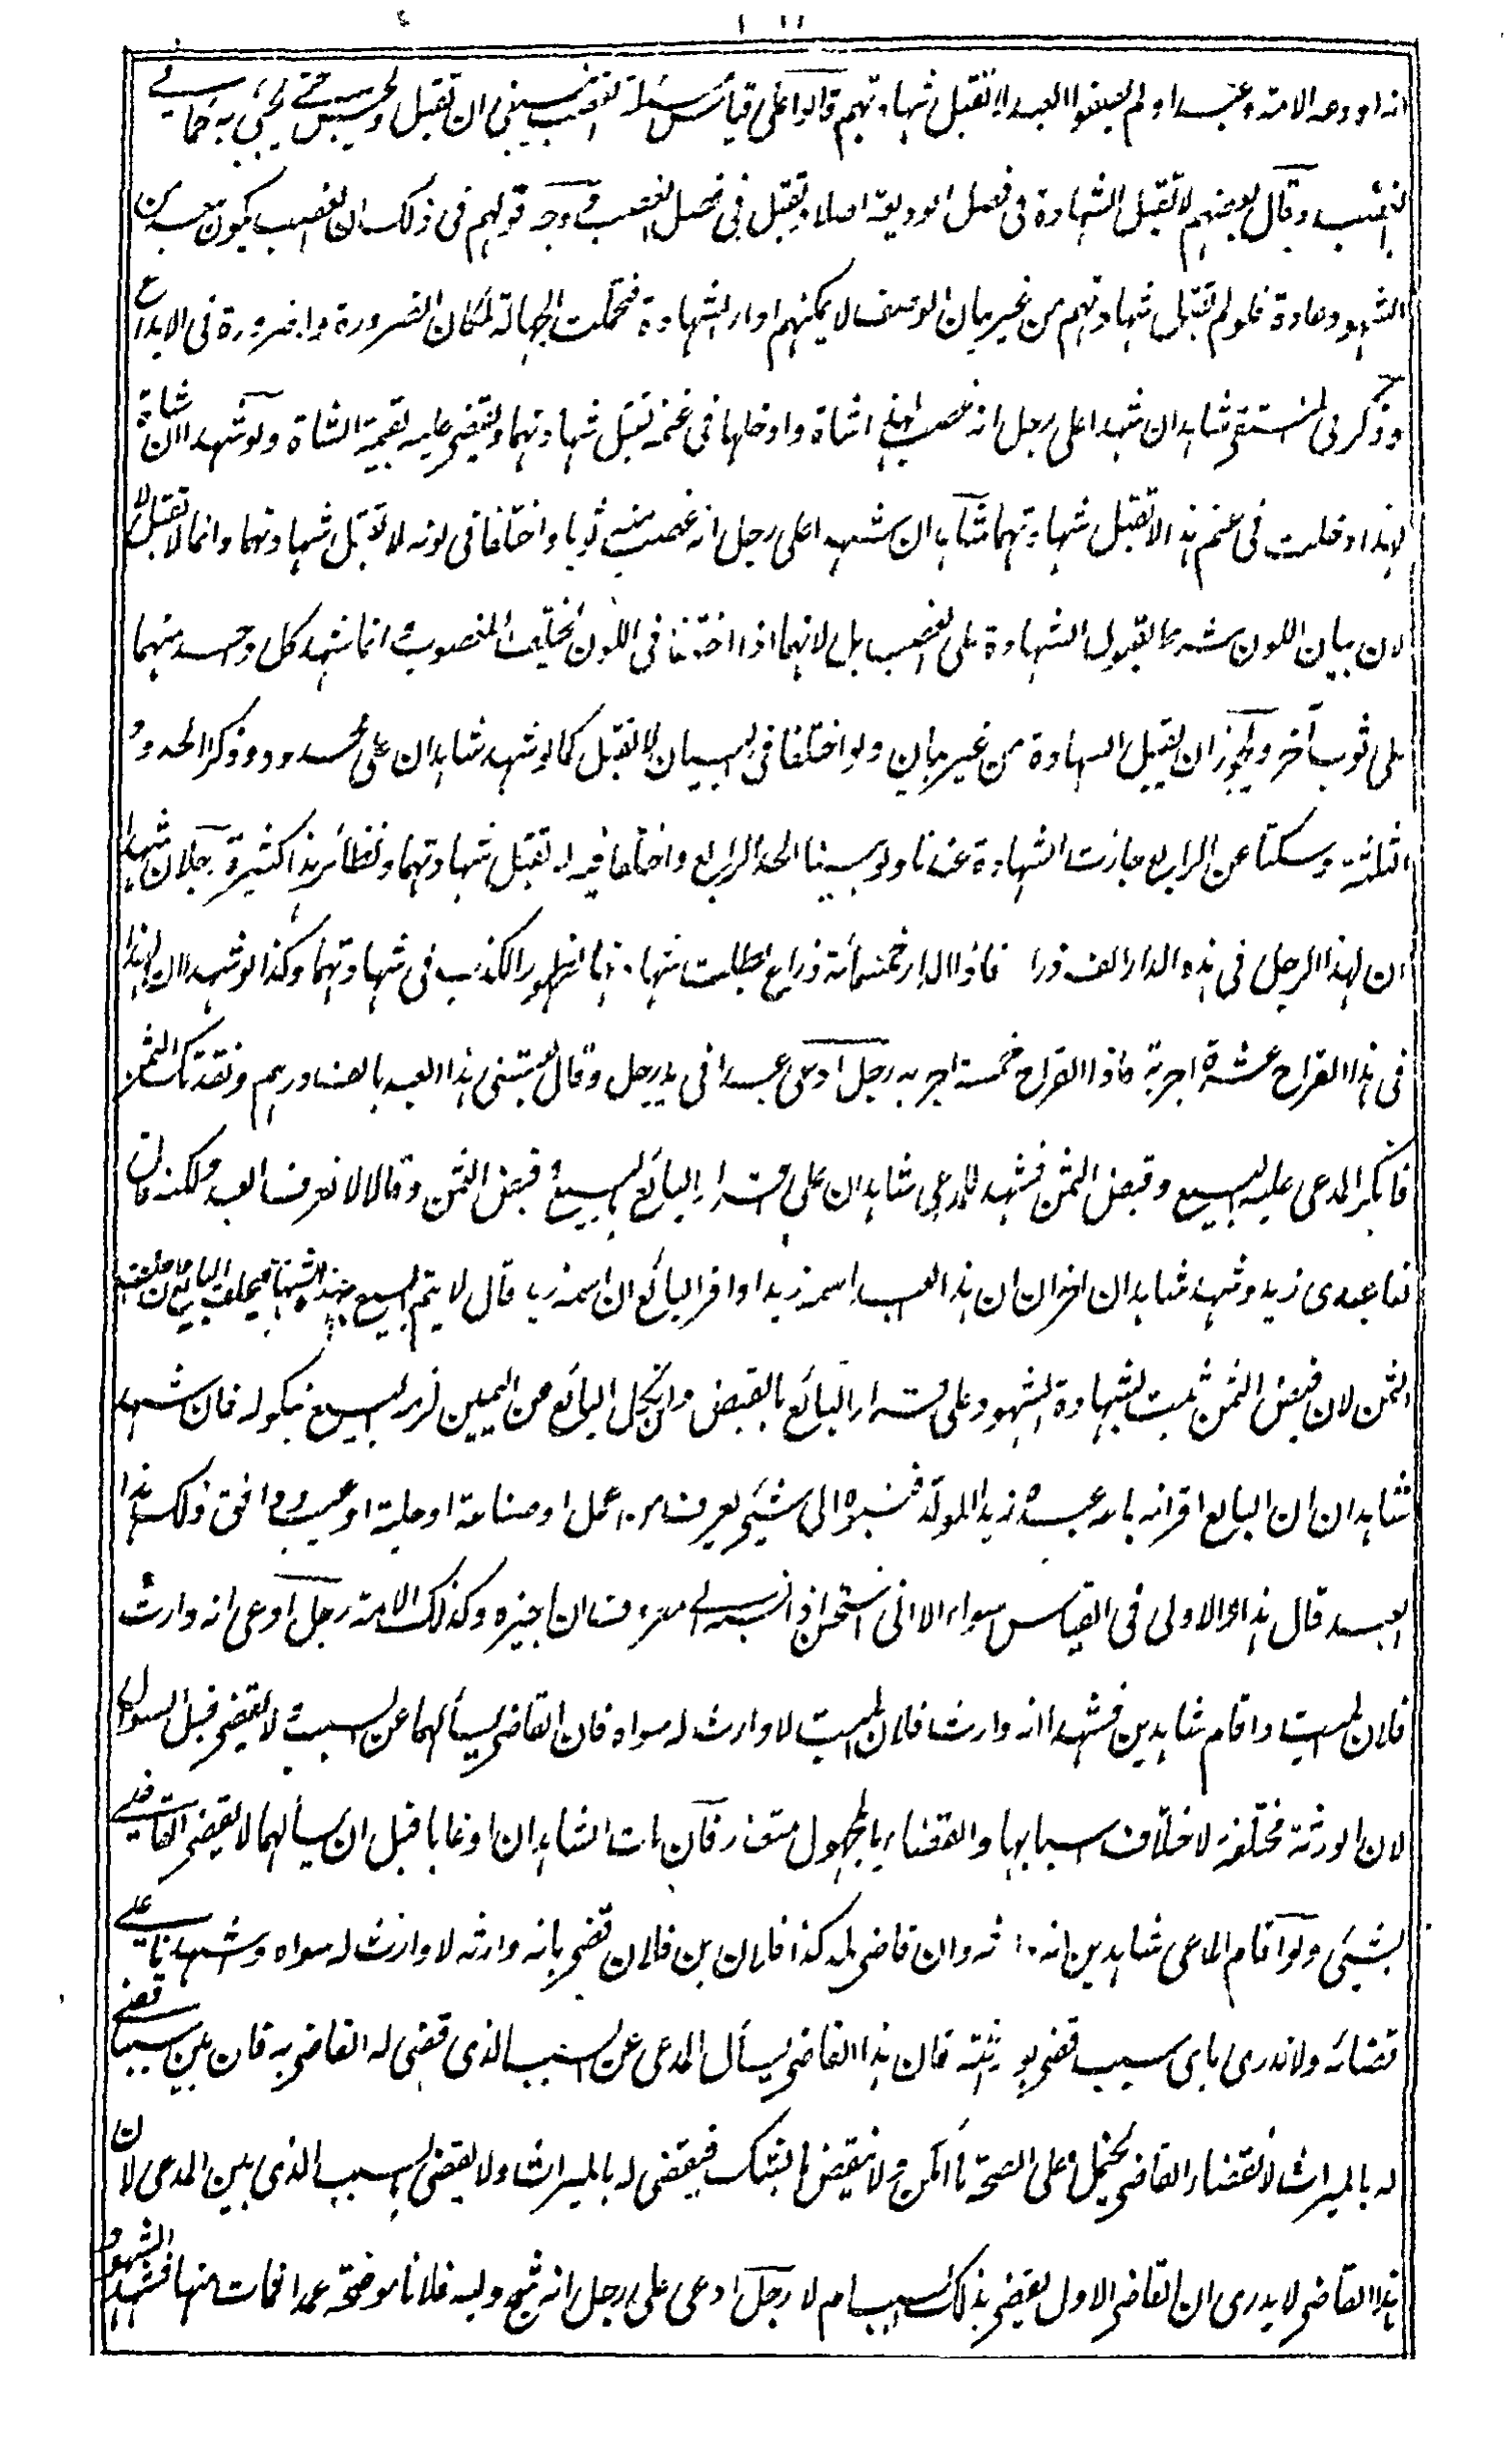 انه اودعه الامة وعبدا ولم يصفوا العبد لا تقبل شهادتهم قالوا على قياس مسئلة الغصب ينبغى ان تقبل ويحبس حتى يجئ به كما فى
الغصب وقال بعضهم لا تقبل الشهادة فى فصل الوديعة اصلا وتقبل فى فصل الغصب ووجه قولهم فى ذلك ان الغصب يكون بعيدا من
الشهود عادة فلو لم تقبل شهادتهم من غير بيان الوصف لا يمكنهم اداء الشهادة فتحملت الجهالة لمكان الضرورة ولا ضرورة فى الايداع
وذكر فى المنتقى شاهدان شهدا على رجل انه غصب لهذا شاة وادخلها فى غنمه تقبل شهادتهما ويقضى عليه بقيمة الشاة ولو شهدا ان شاة
لهذا دخلت فى غنم هذا لا تقبل شهادتهما شاهدان شهدا على رجل انه غصب منه ثوبا واختلفا فى لونه لا تقبل شهادتهما وانما لا تقبل لا
لان بيان اللون شرط لقبول الشهادة على الغصب بل لانهما اذا اختلفا فى اللون يختلف المغصوب وانما شهد كل واحد منهما
على ثوب آخر ويجوز ان تقبل الشهادة من غير بيان ولو اختلفا فى البيان لا تقبل كما لو شهد شاهدان على محدود وذكرا الحدود
الثلثة وسكتا عن الرابع جازت الشهادة عندنا ولو بينا الحد الرابع واختلفا فيه لا تقبل شهادتهما ونظائر هذا كثيرة رجلان شهدا
ان لهذا الرجل فى هذه الدار الف ذراع فاذا الدار خمسمائة ذراع بطلت شهادتهما لظهور الكذب فى شهادتهما وكذا لو شهدا ان لهذا
فى هذا القراح عشرة اجربة فاذا القراح خمسة اجربه رجل ادعى عبدا فى يد رجل وقال بعتنى هذا العبد بالف درهم ونقدتك الثمن
فانكر المدعى عليه البيع وقبض الثمن فشهد للمدعى شاهدان على اقرار البائع بالبيع وقبض الثمن وقالا لا نعرف العبد ولكنه قال
لنا عبدى زيد وشهد شاهدان آخران ان هذا العبد اسمه زيد او اقر البائع ان اسمه زيد قال لا يتم البيع بهذه الشهادة فيحلف البائع فان حلف رد
الثمن لان قبض الثمن ثبت بشهادة الشهود على اقرار البائع بالقبض وان نكل البائع عن اليمين لزمه البيع بنكوله فان شهد
شاهدان ان البائع اقر انه باعه عبده زيد المولد فنسبوه الى شئ يعرف من عمل او صناعة او حلية او عيب ووافق ذلك هذا
العبد قال هذا والاولى فى القياس سواء الا انى استحسن اذا نسبه الى معروف ان اجيزه وكذلك الامة رجل ادعى انه وارث
فلان الميت واقام شاهدين فشهدا انه وارث فلان الميت لا وارث له سواه فان القاضى يسألهما عن السبب ولا يقضى قبل السؤال
لان الورثة مختلفة لاختلاف اسبابها والقضاء بالمجهول متعذر فان مات الشاهدان او غابا قبل ان يسألهما لا يقضى القاضى
بشئ ولو اقام المدعى شاهدين انه وارثه وان قاضى بلد كذا فلان بن فلان قضى بانه وارثه لا وارث له سواه وشهدنا على
قضائه ولا ندرى باى سبب قضى بوراثته فان هذا القاضى يسأل المدعى عن السبب الذى قضى له القاضى به فان بين سببا قضى
له بالميراث لان قضاء القاضى يحمل على الصحة ما امكن ولا ينقض بالشك فيقضى له بالميراث ولا يقضى بالسبب الذى بين المدعى لان
هذا القاضى لا يدرى ان القاضى الاول يقضى بذلك السبب ام لا رجل ادعى على رجل انه شج وليه فلانا موضحة عمدا فمات منها فشهد الشهود